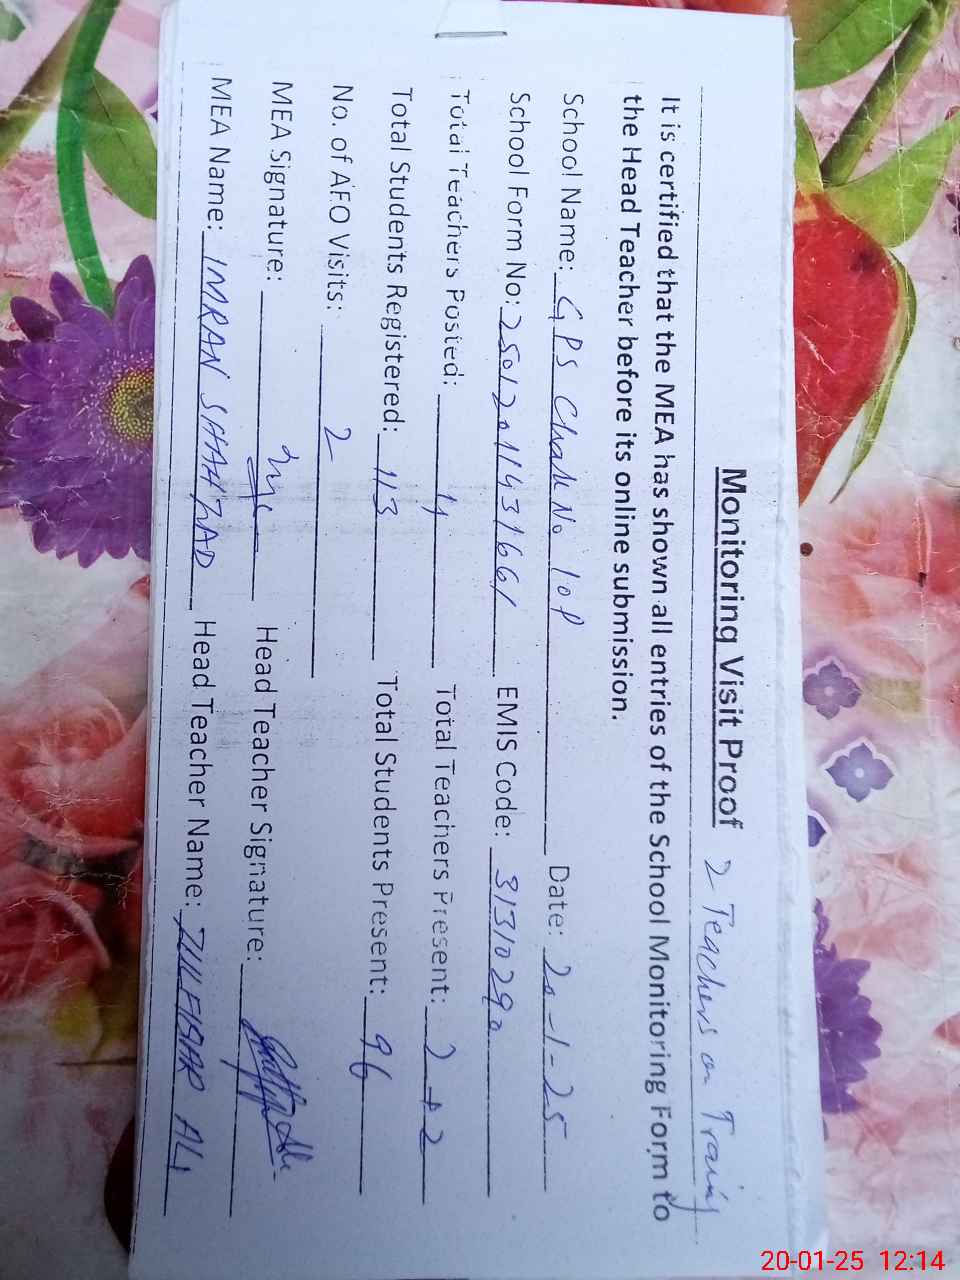 Monitoring Visit Proof 2 Teachers on Traing
It is certified that the MEA has shown all entries of the School Monitoring Form to
the Head Teacher before its online submission.
School Name: GPS Chak No 10P Date: 20-1-25
School Form No: 25012011431661 EMIS Code: 31310290
Total Teachers Posted: Total Teachers Present: 2+2
Total Students Registered: 113 Total Students Present: 96
No. of AEO Visits: 2
MEA Signature: Head Teacher Signature:
MEA Name: IMRAN SHAHZAD Head Teacher Name: ZULFIQAR ALI
20-01-25 12:14